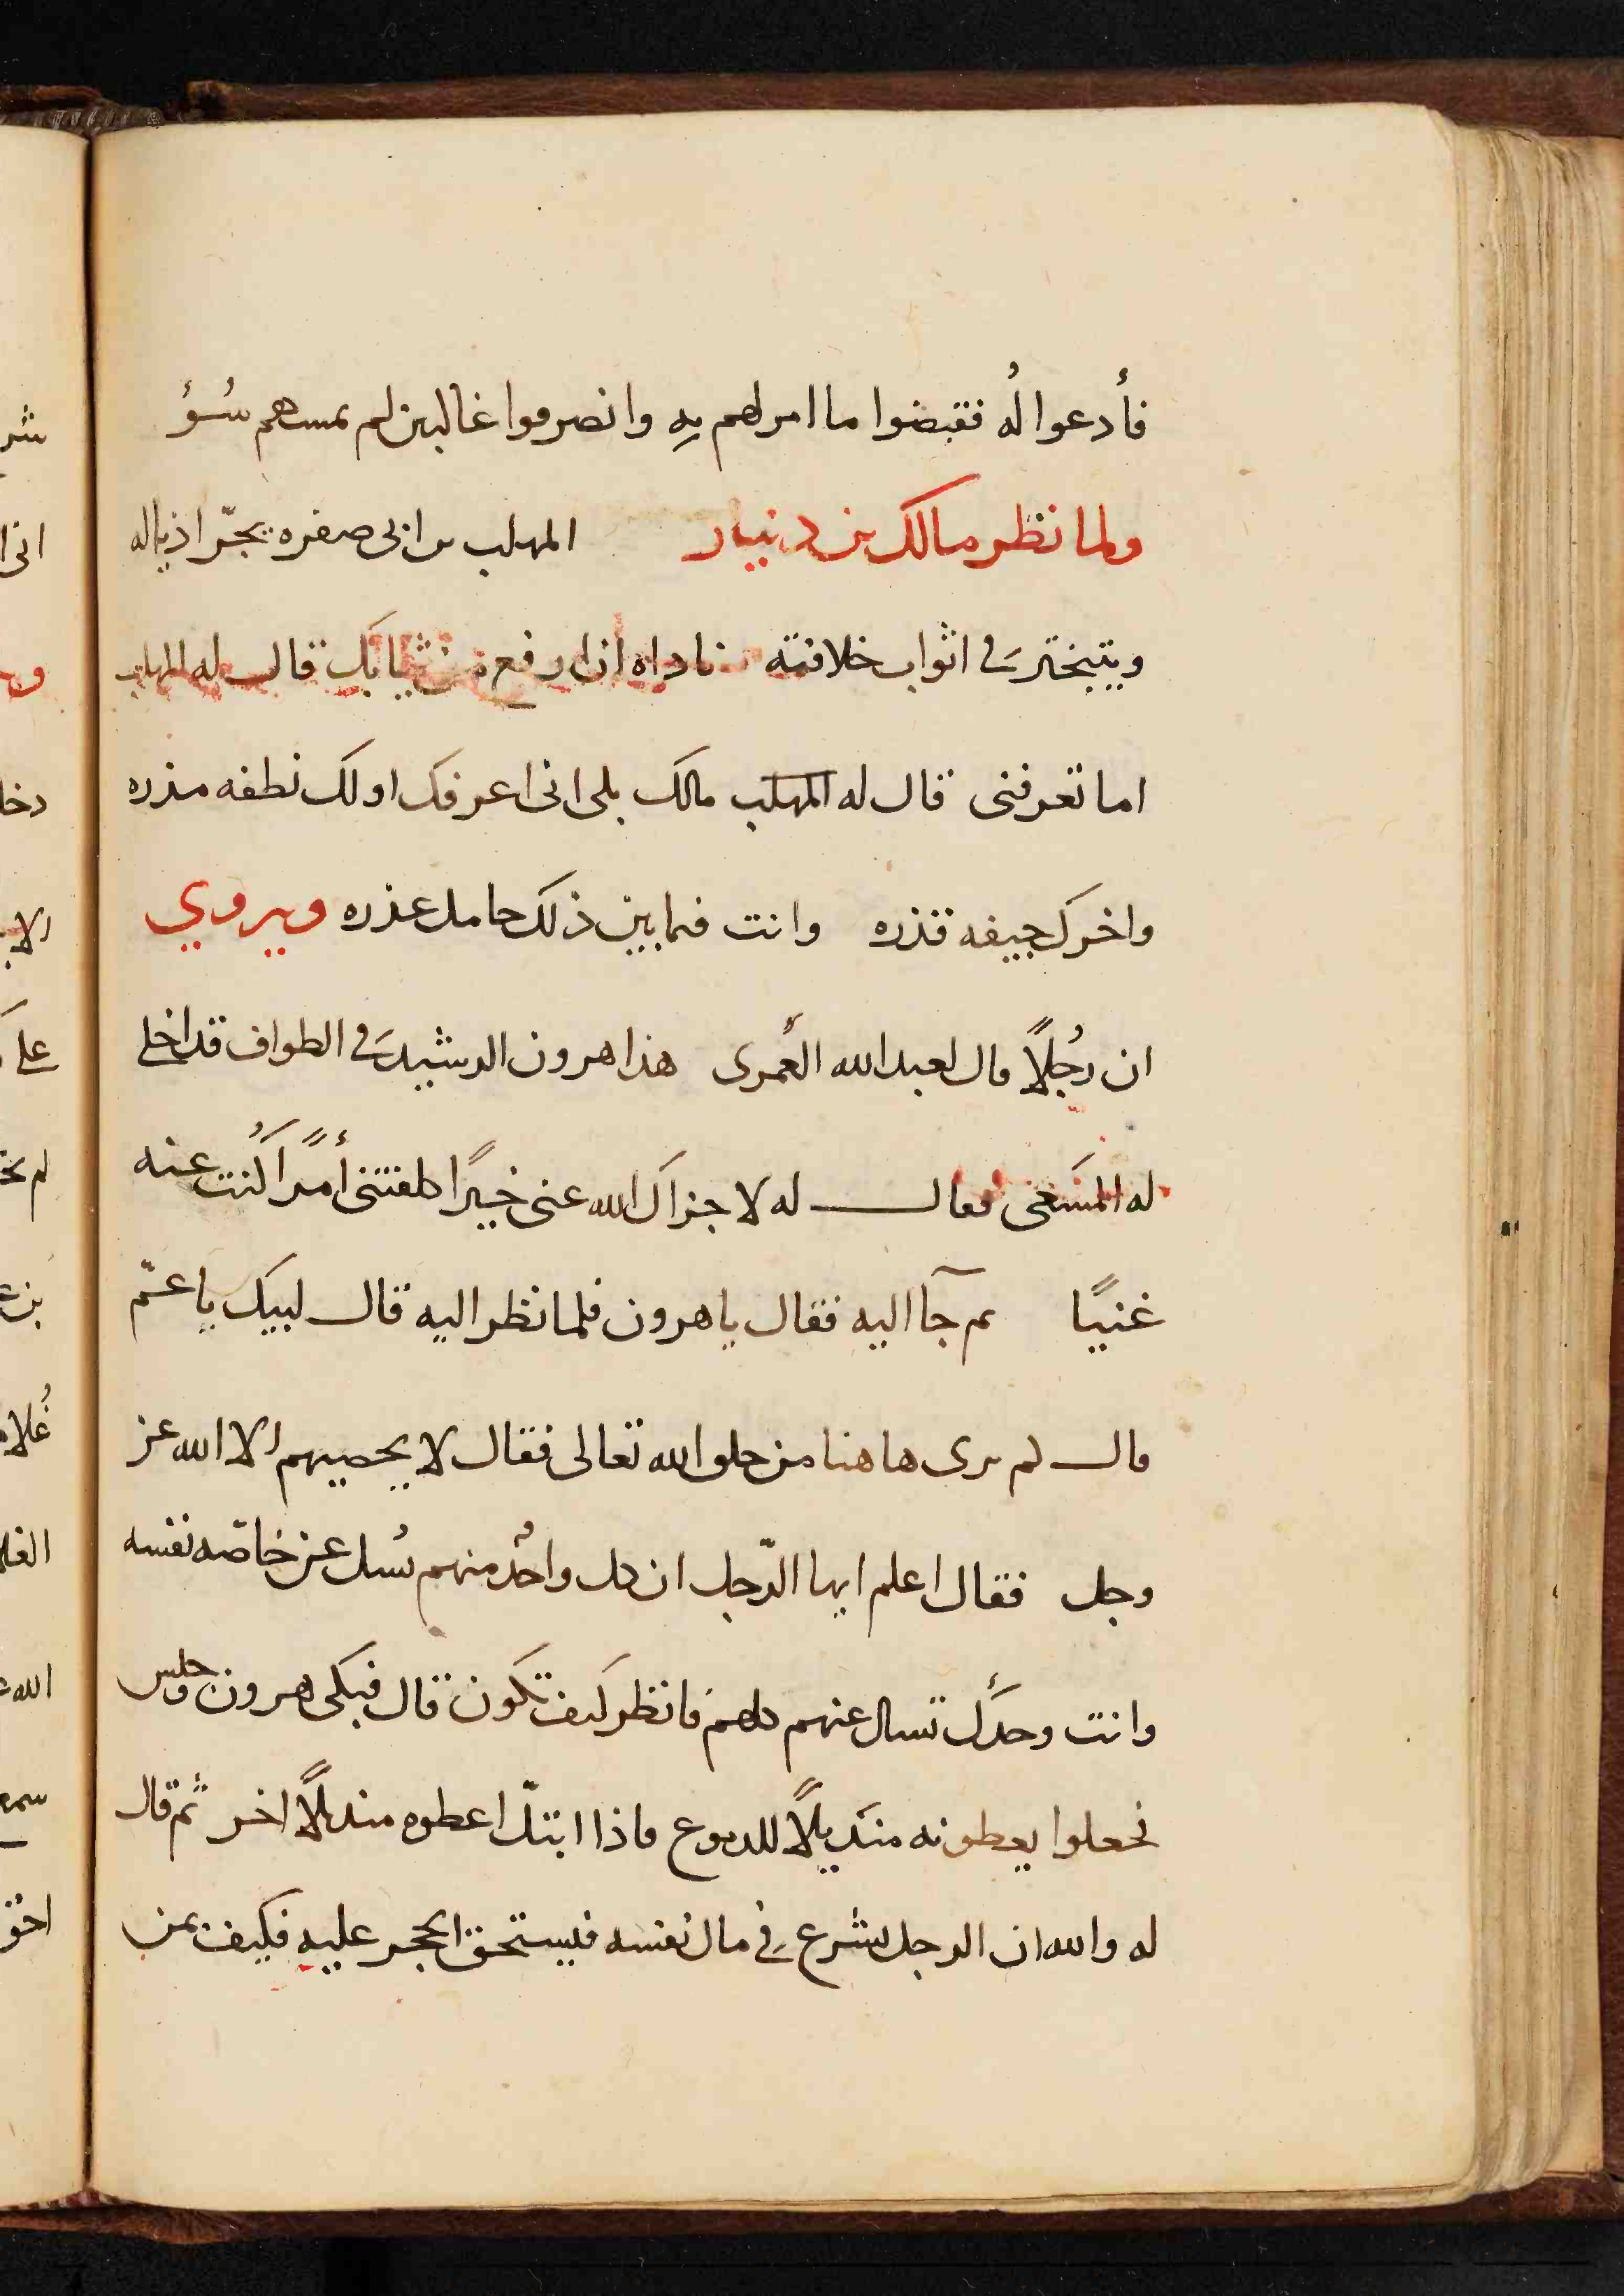 فأدعوا لُه فقبضوا ما امر لهم بِه وانصرفوا غالبين لم يمسهم سُوؤ
ولما نظر مالك بن دينار المهلب بن ابى صفره يجرّ اذياله
ويتبختر في اثواب خلافته ناداه ان ارفع من ثيابَك قال له المهلب
اما تعرفنى قال له المهلب مالك بلى انى اعرفك اولك نطفه مذره
واخرك جيفه قذره وانت فيما بين ذلك حامل عذره ويروي
ان رجُلاً قال لعبد الله العُمرى هذا هرون الرشيد في الطواف قد اخلى
له المَسعَى فقال له لا جزاكَ الله عنى خيرًا كلفتنى أمرًا كُنت عنه
غنيًا ثم جآ اليه فقال يا هرون فلما نظر اليه قال لبيك يا عمّ
قال لم ترى هاهنا من خلق الله تعالى فقال لا يحصيهم الا الله عز
وجل فقال اعلم ايها الرّجل ان كل واحُد منهم يُسل عن خاصّه نفسه
وانت وحدَك تسال عنهم كلهم فانظر كيف تكون قال فبكى هرون وجلس
فجعلوا يعطونه منَديلاً للدموع فاذا ابتلّ اعطوه منديلاً اخر ثم قال
له والله ان الرجل ليشرع في مال نفسه فيستحق الحجر عليه فكيف بمن